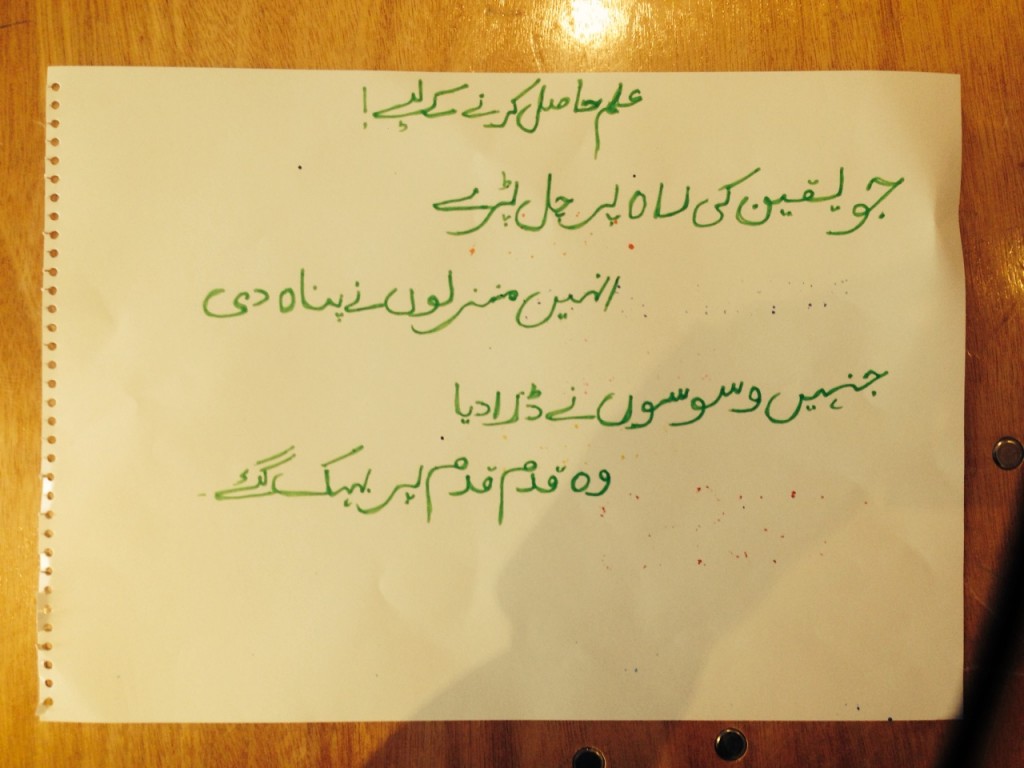 علم حاصل کرنے کے لیے!
جو یقین کی راہ پر چل پڑے
انہیں منزلوں نے پناہ دی
جنہیں وسوسوں نے ڈرا دیا
وہ قدم قدم پر بہک گئے۔